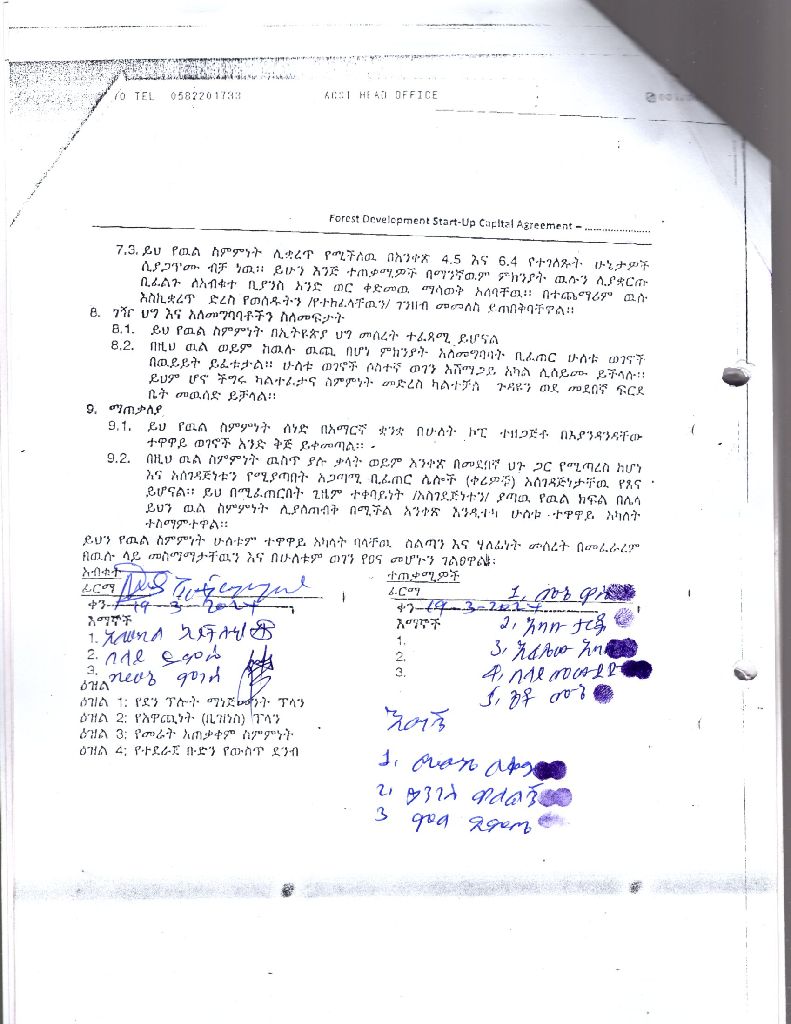 TEL 0582201733 ACSI HEAD OFFICE
Forest Development Start-Up Capital Agreement – ......................
7.3. ይህ የዉል ስምምነት ሊቋረጥ የሚችለዉ በአንቀጽ 4.5 እና 6.4 የተገለጹት ሁኔታዎች
ሲያጋጥሙ ብቻ ነዉ። ይሁን እንጅ ተጠቃሚዎች በማንኛዉም ምክንያት ዉሉን ሊያቋርጡ
ቢፈልጉ ለአብቁተ ቢያንስ አንድ ወር ቀድመዉ ማሳወቅ አለባቸዉ። በተጨማሪም ዉሉ
እስኪቋረጥ ድረስ የወሰዱትን /የተከፈላቸዉን/ ገንዘብ መመለስ ይጠበቅባቸዋል።
8. ገዥ ህግ እና አለመግባባቶችን ስለመፍታት
8.1. ይህ የዉል ስምምነት በኢትዩጵያ ህግ መሰረት ተፈጻሚ ይሆናል
8.2. በዚህ ዉል ወይም ከዉሉ ዉጪ በሆነ ምክንያት አለመግባባት ቢፈጠር ሁለቱ ወገኖች
በዉይይት ይፈቱታል። ሁለቱ ወገኖች ሶስተኛ ወገን አሸማጋይ አካል ሊሰይሙ ይችላሉ።
ይህም ሆኖ ችግሩ ካልተፈታና ስምምነት መድረስ ካልተቻለ ጉዳዩን ወደ መደበኛ ፍርድ
ቤት መዉሰድ ይቻላል።
9. ማጠቃለያ
9.1. ይህ የዉል ስምምነት ሰነድ በአማርኛ ቋንቋ በሁለት ኮፒ ተዘጋጅቶ በእያንዳንዳቸው
ተዋዋይ ወገኖች አንድ ቅጅ ይቀመጣል።
9.2. በዚህ ዉል ስምምነት ዉስጥ ያሉ ቃላት ወይም አንቀጽ በመደበኛ ህጉ ጋር የሚጣረስ ከሆነ
እና አስገዳጅነቱን የሚያጣበት አጋጣሚ ቢፈጠር ሌሎች (ቀሪዎቹ) አስገዳጅነታቸዉ የጸና
ይሆናል። ይህ በሚፈጠርበት ጊዜም ተቀባይነት /አስገደጅነተን/ ያጣዉ የዉል ክፍል በሌላ
ይህን ዉል ስምምነት ሊያስጠብቅ በሚችል አንቀጽ እንዲተካ ሁለቱ ተዋዋይ አካለት
ተስማምተዋል።
ይህን የዉል ስምምነት ሁለቱም ተዋዋይ አካላት ባላቸዉ ስልጣን እና ሃላፊነት መሰረት በመፈራረም
በዉሉ ላይ መስማማታቸዉን እና በሁለቱም ወገን የፀና መሆኑን ገልፀዋል፡
አብቁተ ተጠቃሚዎች
ፊርማ ፊርማ
ቀን 19-3-2027 ቀን 19-3-2027
እማኞች እማኞች
1. 1.
2. 2.
3. 3.
ዕዝል
ዕዝል 1: የደን ፕሎት ማኔጅመንት ፕላን
ዕዝል 2: የአዋጪነት (ቢዝነስ) ፕላን
ዕዝል 3: የመሬት አጠቃቀም ስምምነት
ዕዝል 4; የተደራጀ ቡድን የውስጥ ደንብ